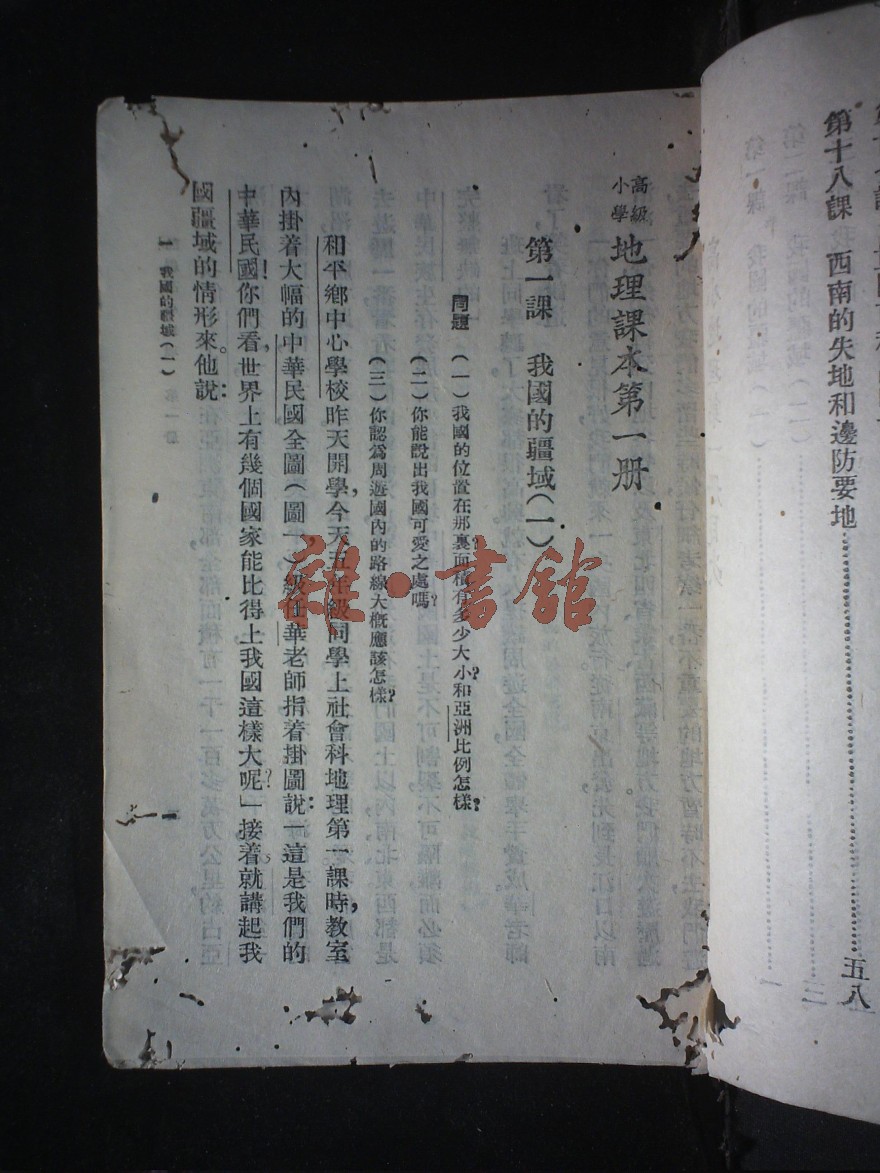 第十八課　西南的失地和邊防要地……五八
高級小學地理課本第一册
第一課　我國的疆域(一)
問題　(一)我國的位置在那裏?面積有多少大小?和亞洲比例怎樣?
(二)你能說出我國可愛之處嗎?
(三)你認爲周遊國內的路線大概應該怎樣?
和平鄉中心學校昨天開學,今天五年級同學上社會科地理第一課時,教室
內掛着大幅的中華民國全圖(圖一)級任華老師指着掛圖說:「這是我們的
中華民國!你們看,世界上有幾個國家能比得上我國這樣大呢?」接着,就講起我
國疆域的情形來。他說:
一　我國的疆域(一)
一
雜·書館